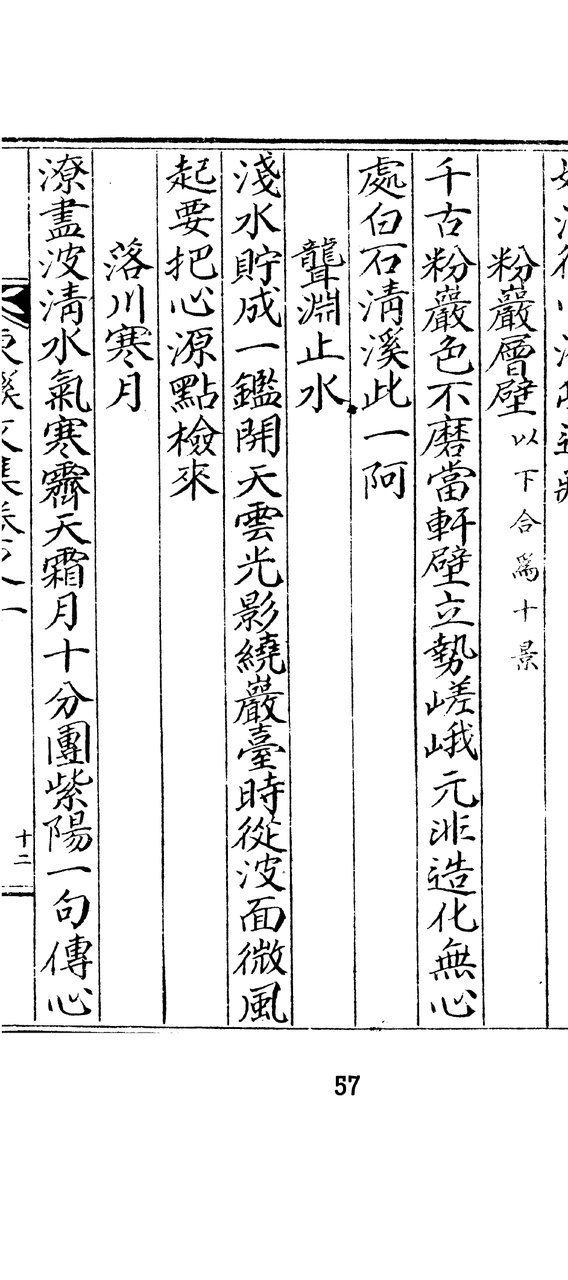 粉巖層壁 以下合爲十景
千古粉巖色不磨當軒壁立勢嵯峨元非造化無心
處白石淸溪此一阿
聾淵止水
淺水貯成一鑑開天雲光影繞巖臺時從波面微風
起要把心源點檢來
落川寒月
潦盡波淸水氣寒霽天霜月十分團紫陽一句傳心
十二
57